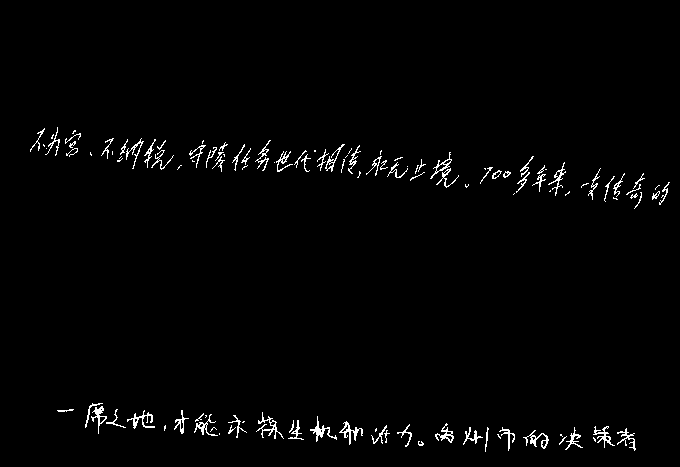 不为官、不纳税,守陵任务世代相传,永无止境。700多年来,支传奇的
一席之地,才能永葆生机和活力。禹州市的决策者